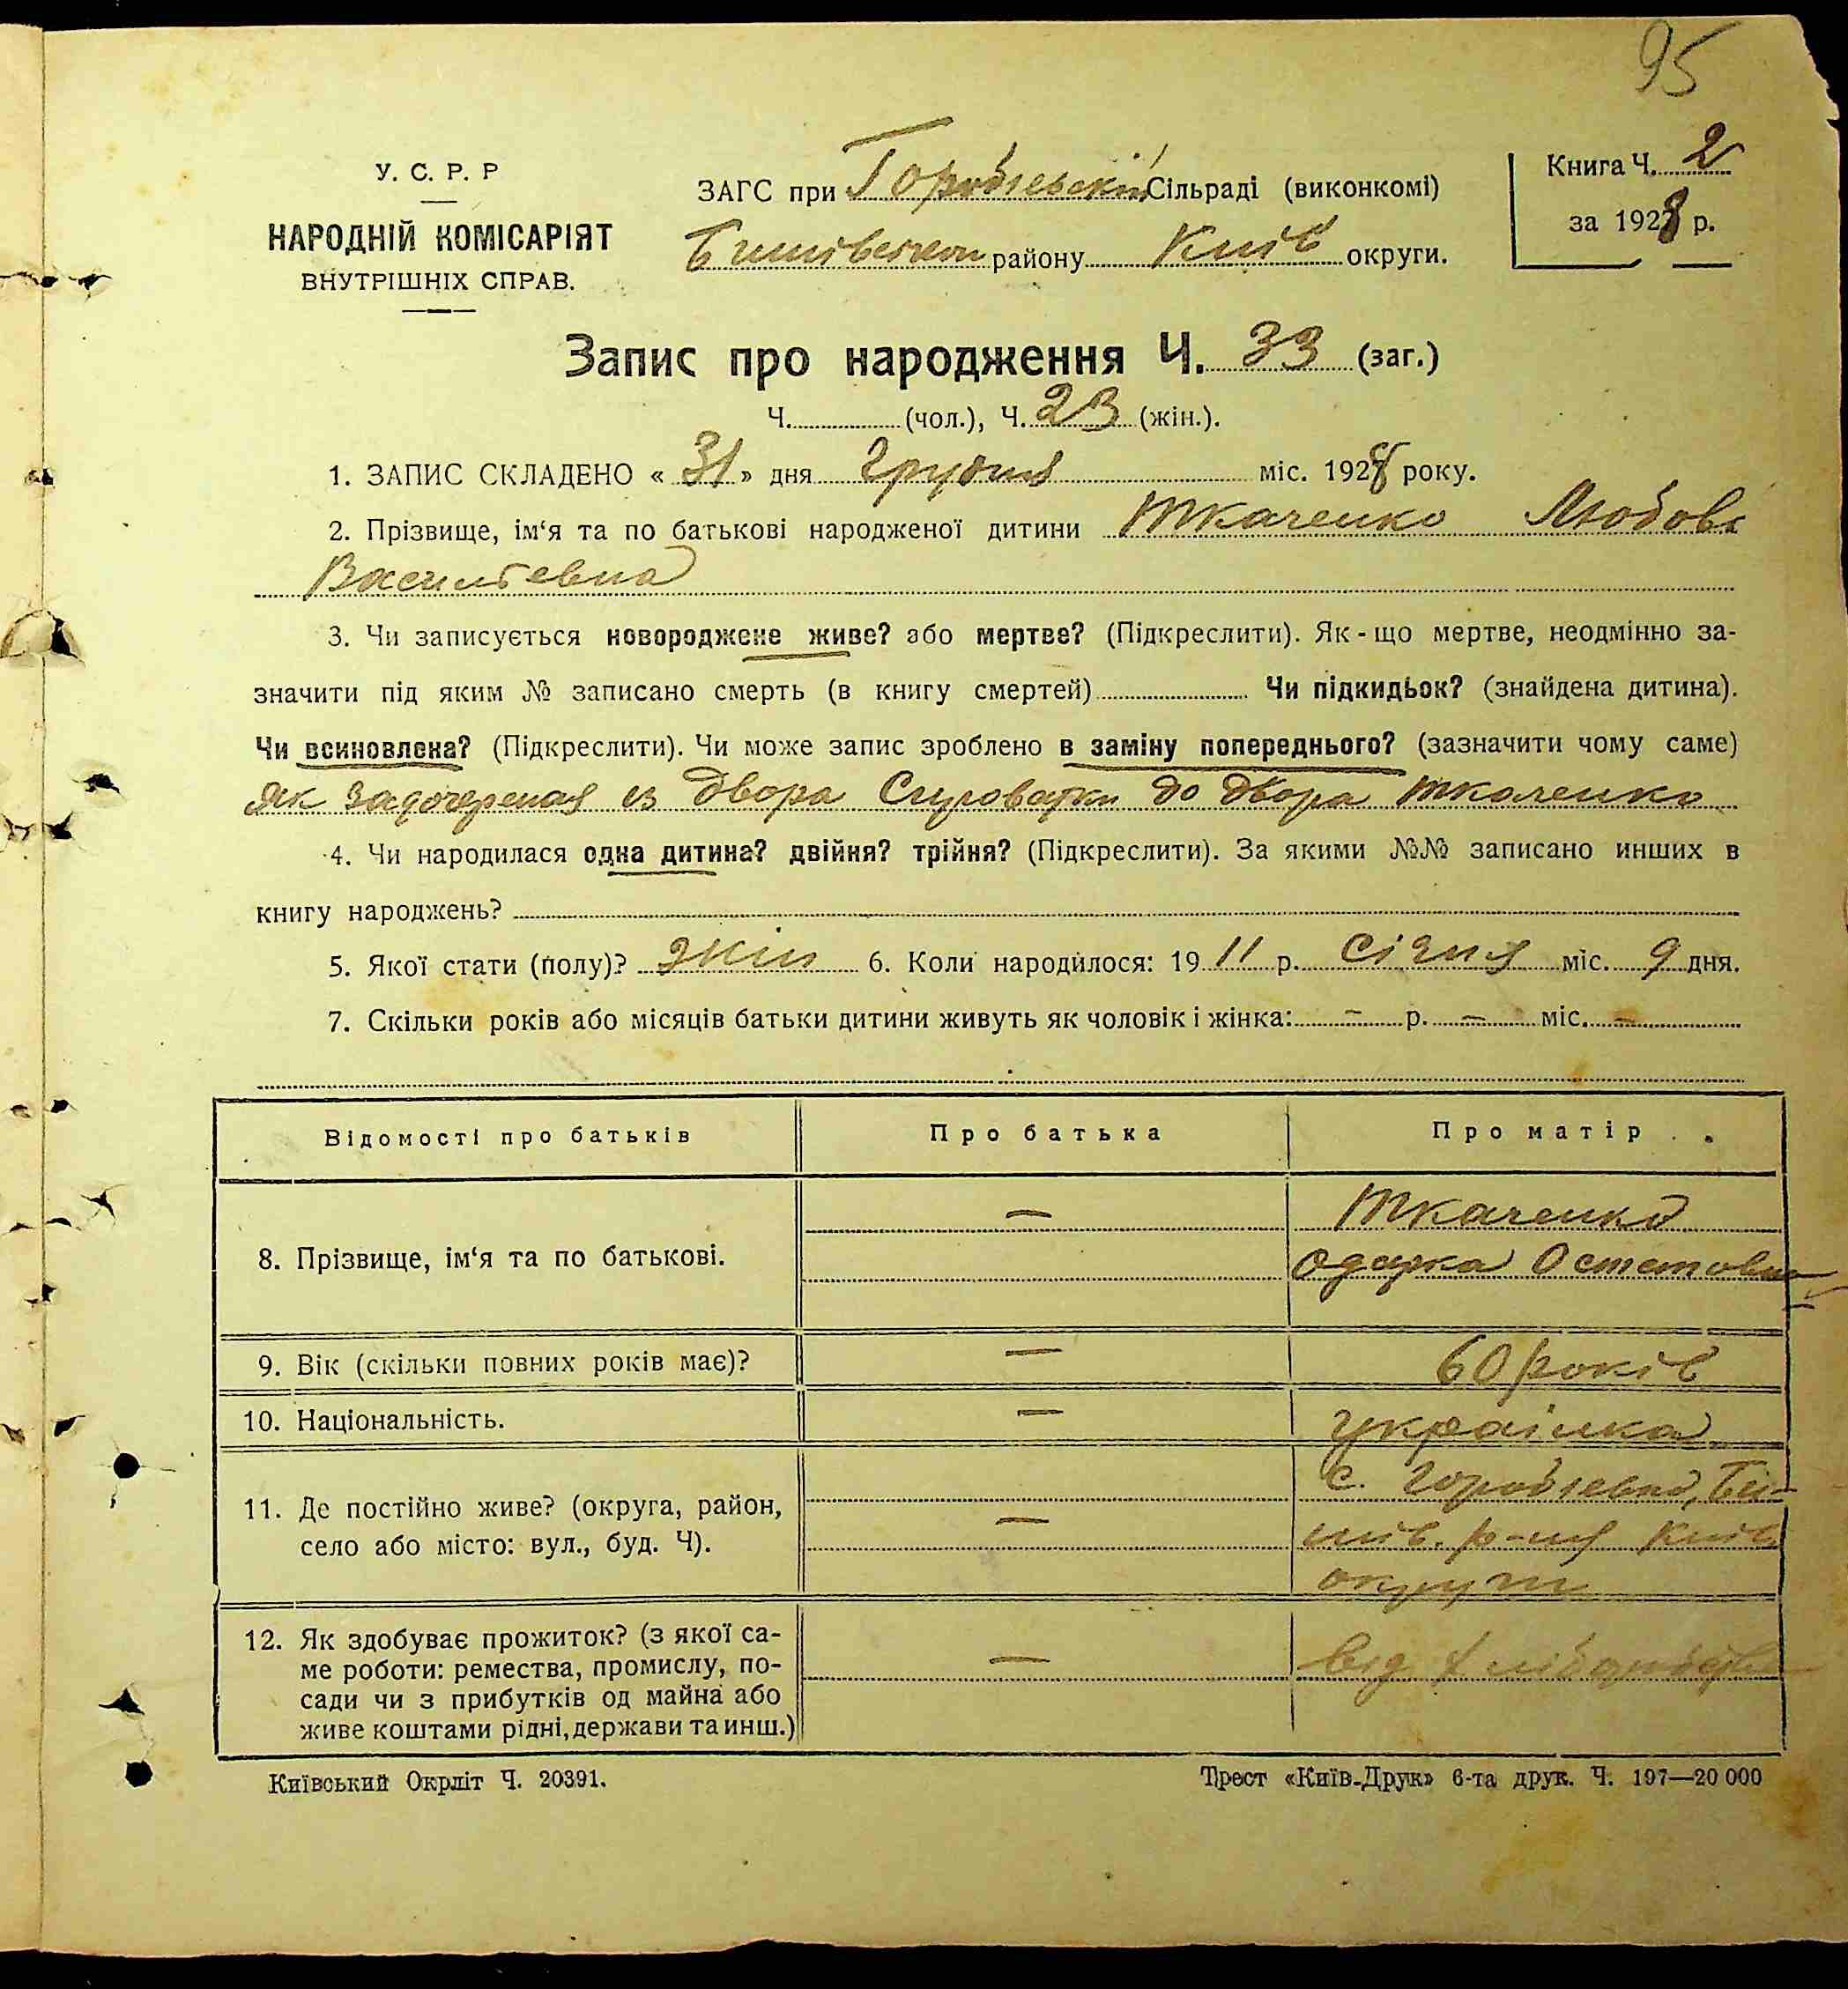 95
У. С. Р. Р
НАРОДНІЙ КОМІСАРІЯТ
ВНУТРІШНІХ СПРАВ.
ЗАГС при Горобіевській Сільраді (виконкомі)
Бишівському району Київ округи.
Книга Ч. 2
за 1928 р.
Запис про народження Ч. 33 (заг.)
Ч. (чол.), Ч. 23 (жін.).
1. ЗАПИС СКЛАДЕНО « 31 » дня Грудня міс. 1928 року.
2. Прізвище, ім‘я та по батькові народженої дитини Ткаченко Любовь
Васильевна
3. Чи записується новороджене живе? або мертве? (Підкреслити). Як-що мертве, неодмінно за-
значити під яким № записано смерть (в книгу смертей) Чи підкидьок? (знайдена дитина).
Чи всиновлена? (Підкреслити). Чи може запис зроблено в заміну попереднього? (зазначити чому саме)
як задочереная из двора Сыроватки до двора Ткаченко
4. Чи народилася одна дитина? двійня? трійня? (Підкреслити). За якими №№ записано инших в
книгу народжень?
5. Якої стати (полу)? жін 6. Коли народилося: 19 11 р. Січня міс. 9 дня.
7. Скільки років або місяців батьки дитини живуть як чоловік і жінка: – р. – міс. –
Відомості про батьків Про батька Про матір
8. Прізвище, ім‘я та по батькові. — Ткаченко
Одарка Остаповна
9. Вік (скільки повних років має)? — 60 років
10. Національність. — українка
11. Де постійно живе? (округа, район,
село або місто: вул., буд. Ч). — с. Горобіевка, Би-
шів. р-ня Київ.
округи
12. Як здобуває прожиток? (з якої са-
ме роботи: ремества, промислу, по-
сади чи з прибутків од майна або
живе коштами рідні, держави та инш.) — від
Київський Окрліт Ч. 20391.
Трест «Київ-Друк» 6-та друк. Ч. 197—20 000